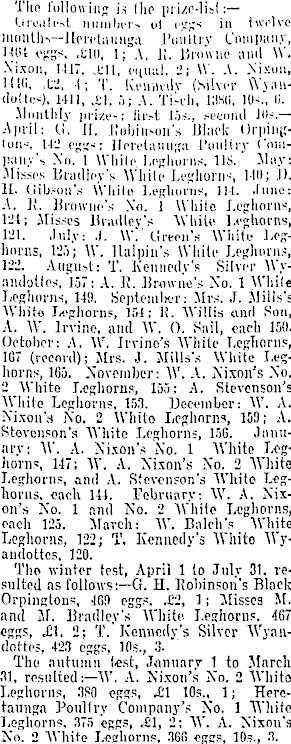 The following is the prize-list:—
Greatest numbers of eggs in twelve
months—Heretaunga Poultry Company,
1464 eggs, £10, 1; A. R. Browne and W.
Nixon, 1447, £11, equal, 2; W. A. Nixon,
1446, £2, 4; T. Kennedy (Silver Wyan-
dottes), 1411, £1, 5; A. Tisch, 1386, 10s., 6.
Monthly prizes: first 15s., second 10s.—
April: G. H. Robinson's Black Orping-
tons, 142 eggs; Heretaunga Poultry Com-
pany's No. 1 White Leghorns, 118. May:
Misses Bradley's White Leghorns, 140; D.
H. Gibson's White Leghorns, 114. June:
A. R. Browne's No. 1 White Leghorns,
124; Misses Bradley's White Leghorns,
121. July: J. W. Green's White Leg-
horns, 125; W. Halpin's White Leghorns,
122. August: T. Kennedy's Silver Wy-
andottes, 157; A. R. Browne's No. 1 White
Leghorns, 149. September: Mrs. J. Mills's
White Leghorns, 154; R. Willis and Son,
A. W. Irvine, and W. O. Sail, each 150.
October: A. W. Irvine's White Leghorns,
167 (record); Mrs. J. Mills's White Leg-
horns, 165. November: W. A. Nixon's No.
2 White Leghorns, 155; A. Stevenson's
White Leghorns, 153. December: W. A.
Nixon's No. 2 White Leghorns, 159; A.
Stevenson's White Leghorns, 156. Janu-
ary: W. A. Nixon's No. 1 White Leg-
horns, 147; W. A. Nixon's No. 2 White
Leghorns, and A. Stevenson's White Leg-
horns, each 144. February: W. A. Nix-
on's No. 1 and No. 2 White Leghorns,
each 125. March: W. Balch's White
Leghorns, 122; T. Kennedy's White Wy-
andottes, 120.
The winter test, April 1 to July 31, re-
sulted as follows:—G. H. Robinson's Black
Orpingtons, 469 eggs, £2, 1; Misses M.
and M. Bradley's White Leghorns, 467
eggs, £1, 2; T. Kennedy's Silver Wyan-
dottes, 423 eggs, 10s., 3.
The autumn test, January 1 to March
31, resulted:—W. A. Nixon's No. 2 White
Leghorns, 380 eggs, £1 10s., 1; Here-
taunga Poultry Company's No. 1 White
Leghorns, 375 eggs, £1, 2; W. A. Nixon's
No. 2 White Leghorns, 366 eggs, 10s., 3.